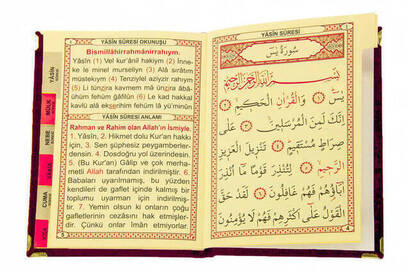 YÂSÎN SÛRESİ OKUNUŞU
Bismillâhirrahmânirrahıym.
Yâsîn (1) Vel kur'ânil hakiym (2) İnne-
ke le minel murseliyn (3) Alâ sırâtım
müstekıym (4) Tenziylel aziyzir rahıym
(5) Li tünzira kavmem mâ ünzira âbâ-
ühüm fehüm ğâfilûn (6) Le kad hakkal
kavlü alâ ekserihim fehüm lâ yü'minûn
YÂSÎN SÛRESİ ANLAMI
Rahman ve Rahim olan Allah'ın İsmiyle.
1. Yâsîn, 2. Hikmet dolu Kur'an hakkı
için, 3. Sen şüphesiz peygamberler-
densin. 4. Dosdoğru yol üzerindesin.
5. (Bu Kur'an) Gâlip ve çok merha-
metli Allah tarafından indirilmiştir. 6.
Babaları uyarılmamış, bu yüzden
kendileri de gaflet içinde kalmış bir
toplumu uyarman için indirilmiş-
tir. 7. Yemin olsun ki onların çoğu
gafletlerinin cezâsını hak etmişler-
dir. Çünkü onlar îman etmiyorlar.
YÂSÎN
MÜLK
NEBE
CUMA
YÂSÎN SÛRESİ
سُورَةُ يٰسٓ
بِسْمِ اللّٰهِ الرَّحْمٰنِ الرَّحِيمِ
يٰسٓ ﴿١﴾ وَالْقُرْاٰنِ الْحَكِيمِ ﴿٢﴾
اِنَّكَ لَمِنَ الْمُرْسَلِينَ ﴿٣﴾ عَلٰى
صِرَاطٍ مُسْتَقِيمٍ ﴿٤﴾ تَنْزِيلَ الْعَزِيزِ
الرَّحِيمِ ﴿٥﴾ لِتُنْذِرَ قَوْمًا مَٓا اُنْذِرَ
اٰبَٓاؤُهُمْ فَهُمْ غَافِلُونَ ﴿٦﴾ لَقَدْ حَقَّ
الْقَوْلُ عَلٰٓى اَكْثَرِهِمْ فَهُمْ لَا يُؤْمِنُونَ